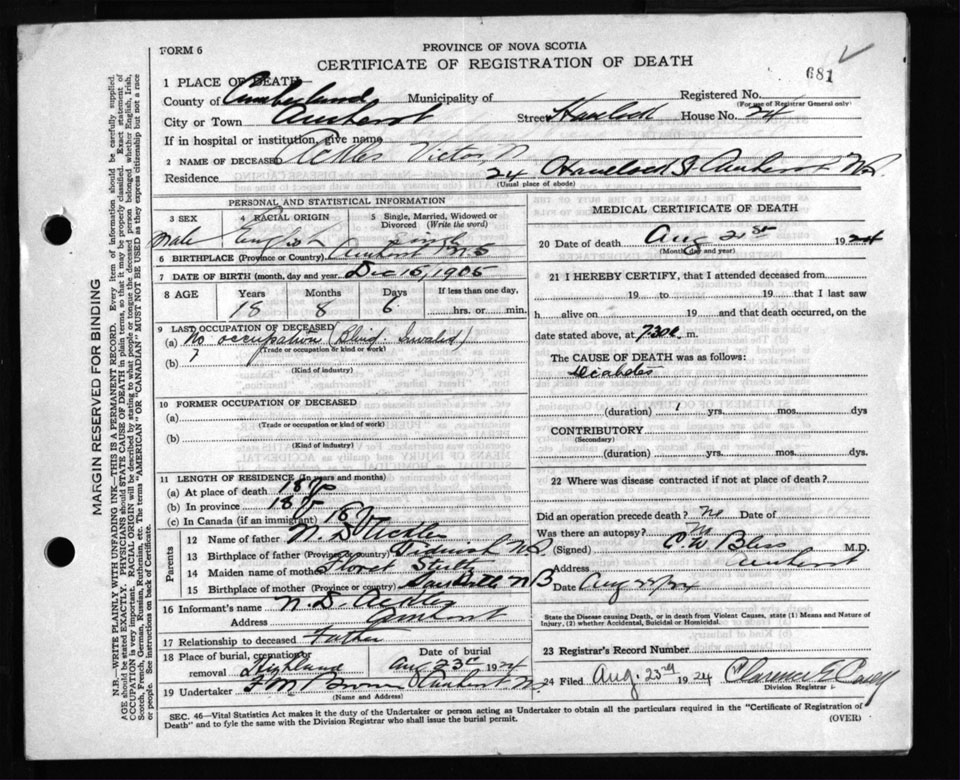 FORM 6
PROVINCE OF NOVA SCOTIA
CERTIFICATE OF REGISTRATION OF DEATH
681
MARGIN RESERVED FOR BINDING
N.B.—WRITE PLAINLY WITH UNFADING INK—THIS IS A PERMANENT RECORD. Every item of information should be carefully supplied.
AGE should be stated EXACTLY. PHYSICIANS should STATE CAUSE OF DEATH in plain terms, so that it may be properly classified. Exact statement of
OCCUPATION is very important. RACIAL ORIGIN will be described by stating to what people or tongue the deceased person belonged whether English, Irish,
Scotch, French, German, Russian, Ruthenian, etc. The terms "AMERICAN" or "CANADIAN" MUST NOT BE USED as they express citizenship but not a race
or people. See instructions on back of Certificate.
1 PLACE OF DEATH
County of Cumberland Municipality of Registered No.
(For use of Registrar General only)
City or Town Amherst Street Havelock House No. 24
If in hospital or institution, give name
2 NAME OF DECEASED Ackles Victor
Residence 24 Havelock St Amherst N.S.
(Usual place of abode)
PERSONAL AND STATISTICAL INFORMATION
3 SEX 4 RACIAL ORIGIN 5 Single, Married, Widowed or Divorced (Write the word)
Male English Single
6 BIRTHPLACE (Province or Country) Amherst N.S
7 DATE OF BIRTH (month, day and year) Dec 15, 1905
8 AGE Years Months Days If less than one day,
18 8 6 ....hrs. or ....min.
9 LAST OCCUPATION OF DECEASED
(a) No occupation (Blind Invalid)
(Trade or occupation or kind or work)
(b) ?
(Kind of industry)
10 FORMER OCCUPATION OF DECEASED
(a)
(Trade or occupation or kind of work)
(b)
(Kind of industry)
11 LENGTH OF RESIDENCE (In years and months)
(a) At place of death 18
(b) In province 18
(c) In Canada (if an immigrant) 18
Parents
12 Name of father N. D. Ackles
13 Birthplace of father (Province or country) Tidnish N.S
14 Maiden name of mother
15 Birthplace of mother (Province or country) N B
16 Informant's name N. D. Ackles
Address Amherst
17 Relationship to deceased Father
18 Place of burial, cremation or removal Highland
Date of burial Aug 23rd 1924
19 Undertaker F.M. Brown Amherst N.S.
(Name and Address)
MEDICAL CERTIFICATE OF DEATH
20 Date of death Aug 21st 1924
(Month, day and year)
21 I HEREBY CERTIFY, that I attended deceased from
19 to 19 that I last saw
h alive on 19 and that death occurred, on
date stated above, at 7.30 m.
The CAUSE OF DEATH was as follows:
Diabetes
(duration) 1 yrs. mos. dys
CONTRIBUTORY
(Secondary)
(duration) yrs. mos. dys.
22 Where was disease contracted if not at place of death?
Did an operation precede death? No Date of
Was there an autopsy? No
(Signed) C.W. Bliss M.D.
Address Amherst
Date Aug 22/24
State the Disease causing Death, or in death from Violent Causes, state (1) Means and Nature of
Injury, (2) whether Accidental, Suicidal or Homicidal.
23 Registrar's Record Number
24 Filed Aug. 23rd 1924 Clarence E.
Division Registrar
SEC. 46—Vital Statistics Act makes it the duty of the Undertaker or person acting as Undertaker to obtain all the particulars required in the "Certificate of Registration of
Death" and to fyle the same with the Division Registrar who shall issue the burial permit.
(OVER)